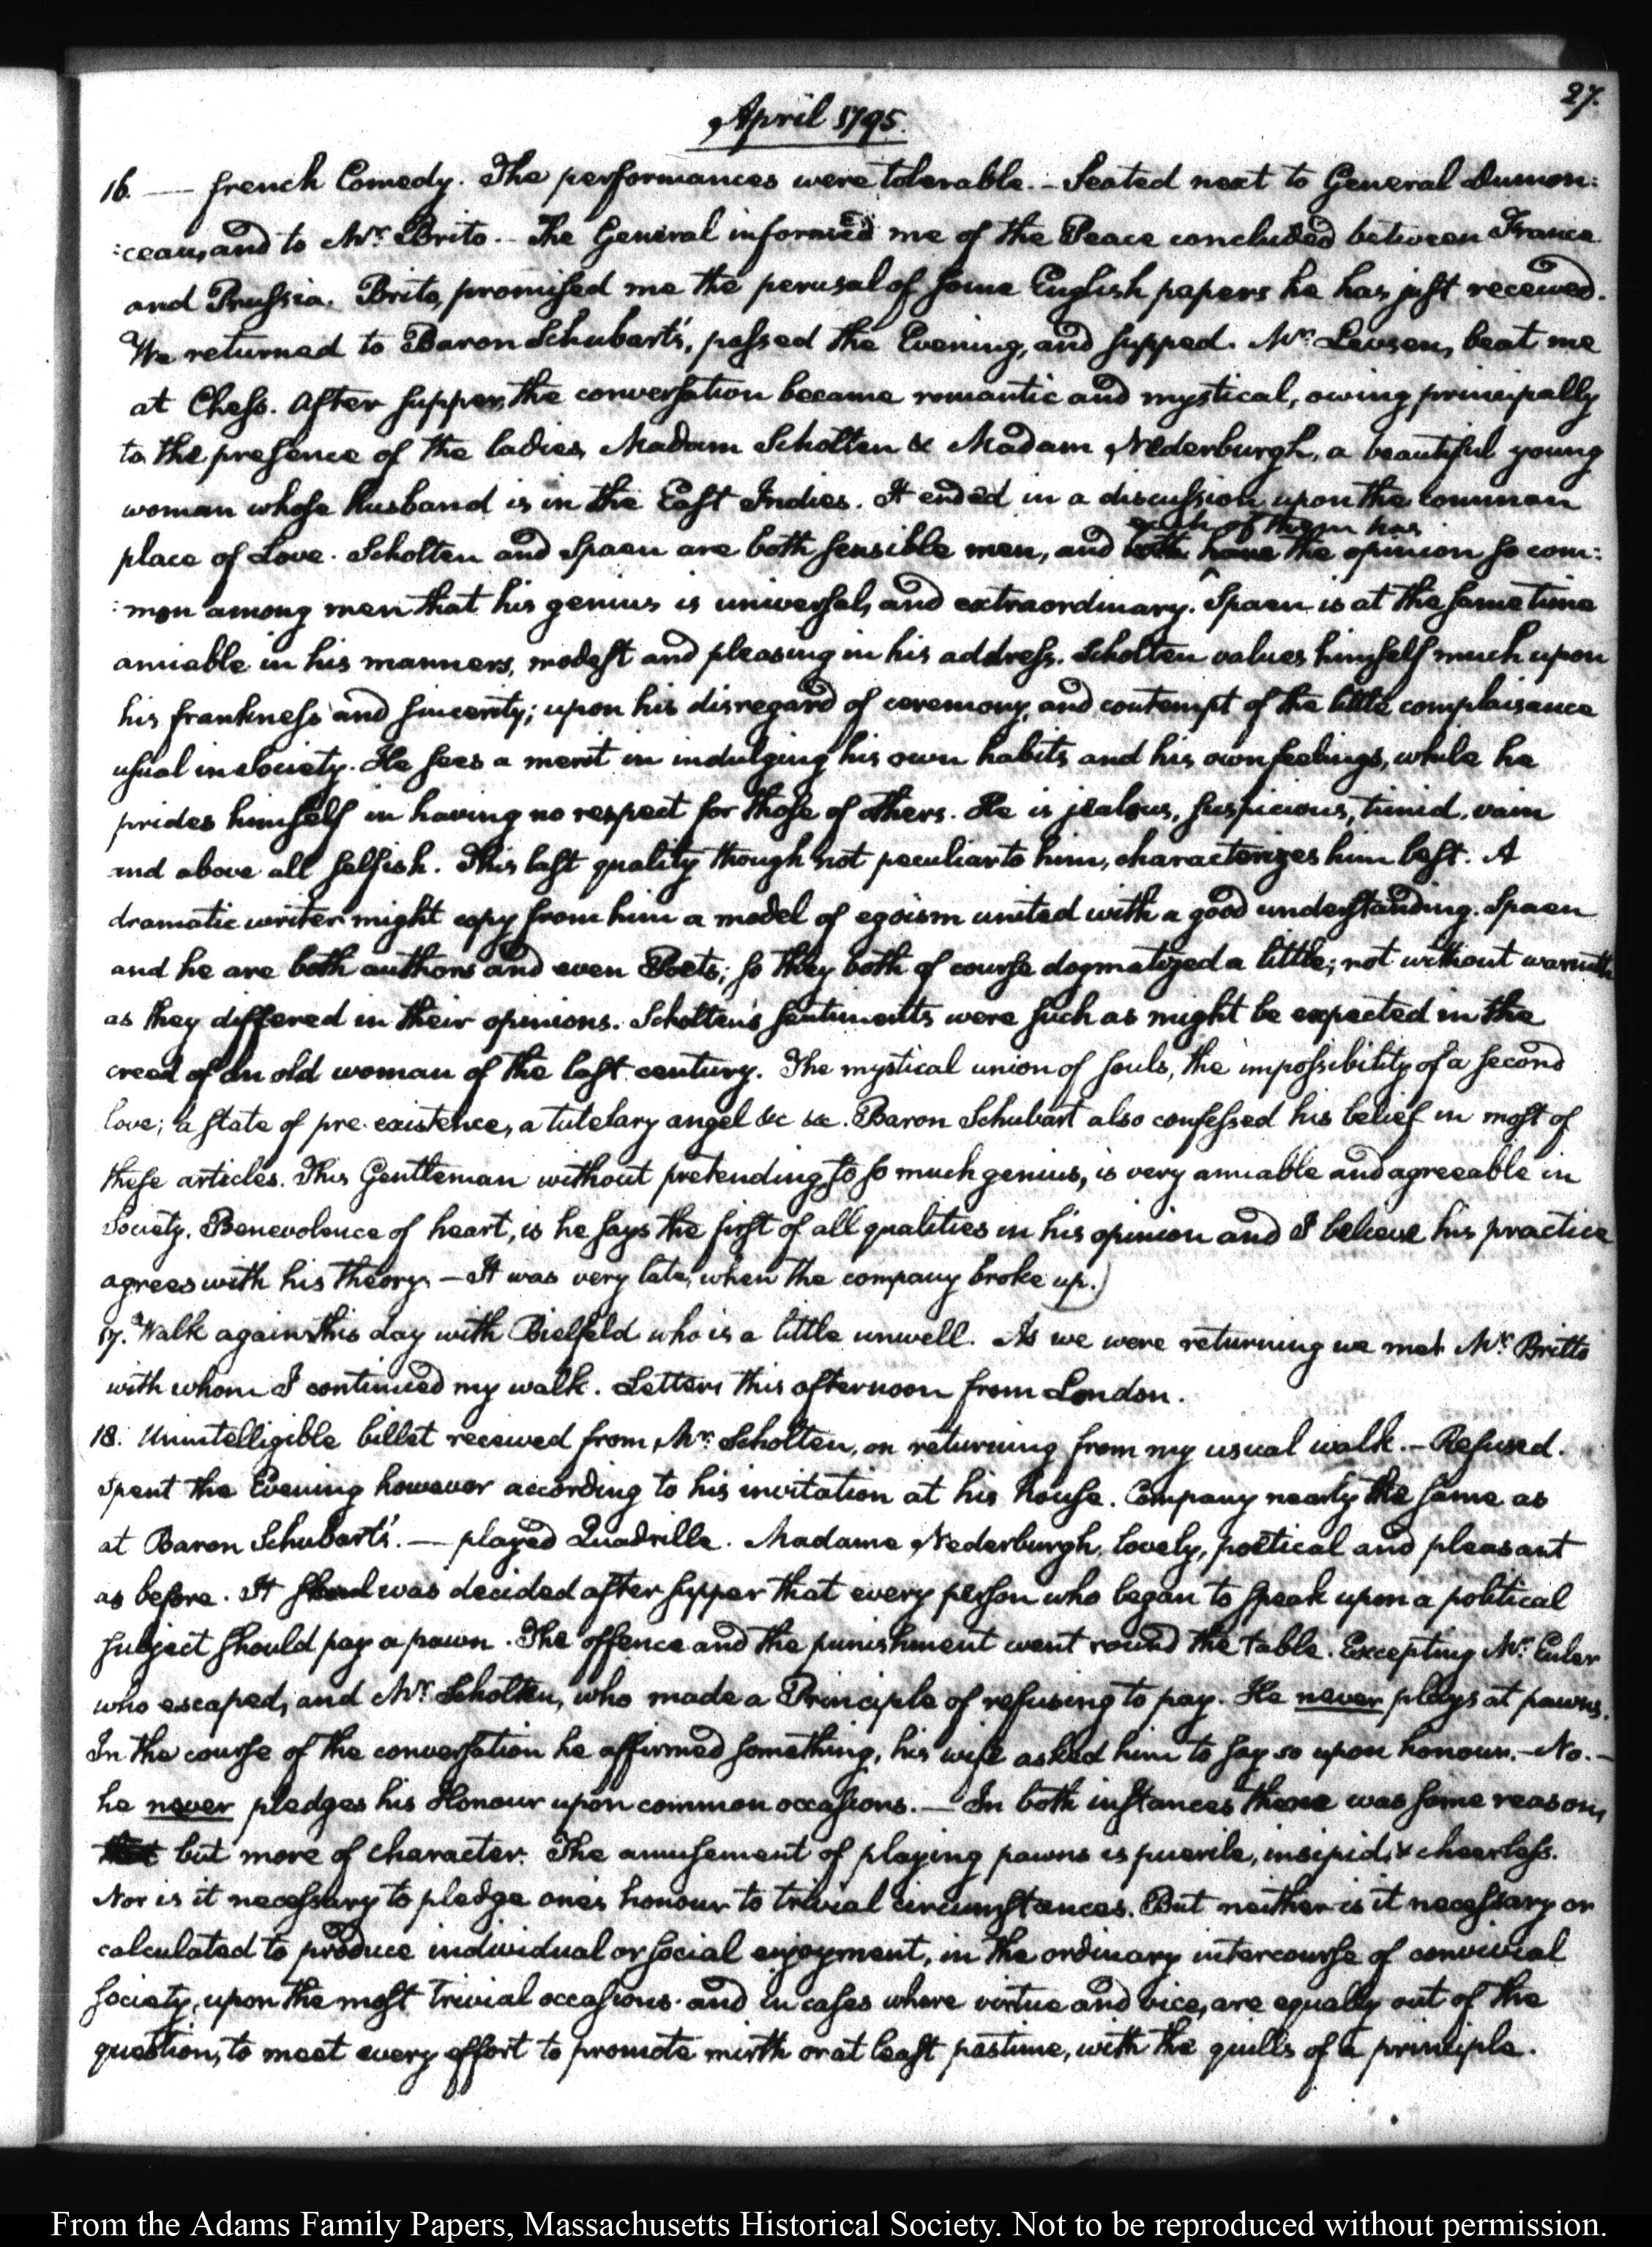 27.
April 1795.
16. — French Comedy. The performances were tolerable. – Seated next to General Dumon:
:ceau, and to Mr. Brito. – The General informed me of the Peace concluded between France
and Prussia. Brito, promised me the perusal of some English papers he has just received.
We returned to Baron Schubart's, passed the Evening, and supped. Mr. Levsen, beat me
at Chess. After supper, the conversation became romantic and mystical, owing principally
to the presence of the ladies, Madam Scholten & Madam Nederburgh, a beautiful young
woman whose husband is in the East Indies. It ended in a discussion upon the common
place of Love. Scholten and Spaen are both sensible men, and both have each of them has the opinion so com:
:mon among men that his genius is universal, and extraordinary. Spaen is at the same time
amiable in his manners, modest and pleasing in his address. Scholten values himself much upon
his frankness and sincerity; upon his disregard of ceremony, and contempt of the little complaisance
usual in Society. He sees a merit in indulging his own habits and his own feelings, while he
prides himself in having no respect for those of others. He is jealous, suspicious, timid, vain
and above all selfish. This last quality though not peculiar to him, characterizes him best. A
dramatic writer might copy from him a model of egoism united with a good understanding. Spaen
and he are both authors and even Poets; so they both of course dogmatized a little; not without warmth
as they differed in their opinions. Scholten's sentiments were such as might be expected in the
creed of an old woman of the last century. The mystical union of souls, the impossibility of a second
love; a state of pre-existence, a tutelary angel &c &c. Baron Schubart also confessed his belief in most of
these articles. This Gentleman without pretending to so much genius, is very amiable and agreeable in
Society. Benevolence of heart, is he says the first of all qualities in his opinion and I believe his practice
agrees with his theory. – It was very late, when the company broke up.)
17. Walk again this day with Bielfeld who is a little unwell. As we were returning we met Mr. Britto
with whom I continued my walk. Letters this afternoon from London.
18. Unintelligible billet received from Mr. Scholten, on returning from my usual walk. – Refused.
Spent the Evening however according to his invitation at his house. Company nearly the same as
at Baron Schubart's. — played Quadrille. Madame Nederburgh, lovely, poetical and pleasant
as before. It was decided after supper that every person who began to speak upon a political
subject should pay a pawn. The offence and the punishment went round the table. Excepting Mr. Euler
who escaped, and Mr. Scholten, who made a Principle of refusing to pay. He never plays at pawns.
In the course of the conversation he affirmed something, his wife asked him to say so upon honour. – No. –
he never pledges his Honour upon common occasions. – In both instances there was some reason,
but more of character. The amusement of playing pawns is puerile, insipid, & cheerless.
Nor is it necessary to pledge one's honour to trivial circumstances. But neither is it necessary or
calculated to produce individual or social enjoyment, in the ordinary intercourse of convivial
society, upon the most trivial occasions and in cases where virtue and vice, are equally out of the
question, to meet every effort to promote mirth or at least pastime, with the quills of a principle.
From the Adams Family Papers, Massachusetts Historical Society. Not to be reproduced without permission.